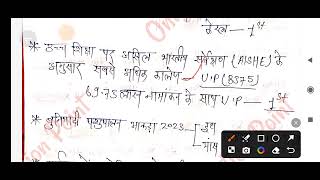 केरल — 1st
* उच्च शिक्षा पर अखिल भारतीय सर्वेक्षण (AISHE) के
अनुसार सबसे अधिक कालेज U.P (8375)
69.73 लाख नामांकन के साथ U.P — 1st
* बुनियादी पशुपालन आकड़ा 2023 दुध
मांस